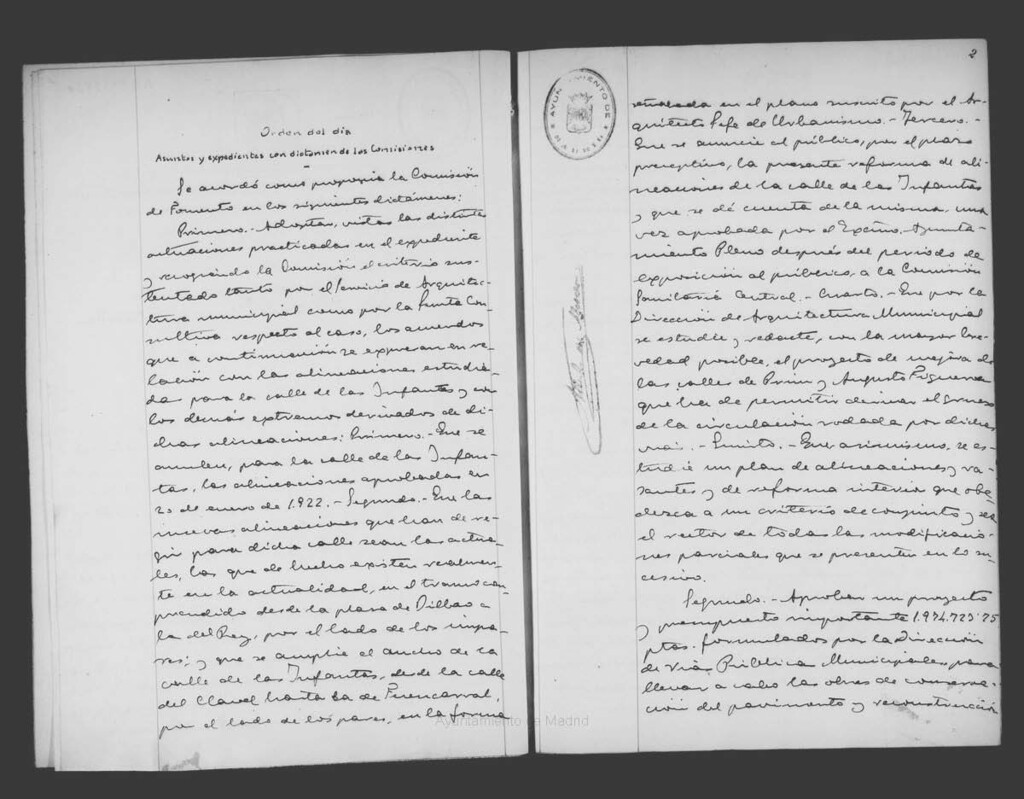 Orden del día
Asuntos y expedientes con dictamen de las Comisiones
Se acordó como proponía la Comisión
de Fomento en los siguientes dictámenes:
Primero.- Adoptar, vistas las distintas
actuaciones practicadas en el expediente
y recogiendo la Comisión el criterio sus-
tentado tanto por el Servicio de Arquitec-
tura municipal como por la Junta Con-
sultiva respecto al caso, los acuerdos
que a continuación se expresan en re-
lación con las alineaciones estudia-
das para la calle de las Infantas y con
los demás extremos derivados de di-
chas alineaciones: Primero.- Que se
anulen, para la calle de las Infan-
tas, las alineaciones aprobadas en
20 de enero de 1.922.- Segundo.- Que las
nuevas alineaciones que han de re-
gir para dicha calle sean las actua-
les, las que de hecho existen realmen-
te en la actualidad, en el tramo com-
prendido desde la plaza de Bilbao a
la del Rey, por el lado de los impa-
res; y que se amplíe el ancho de la
calle de las Infantas, desde la calle
del Clavel hasta la de Fuencarral,
por el lado de los pares, en la forma
2
AYUNTAMIENTO DE MADRID
señalada en el plano suscrito por el Ar-
quitecto Jefe de Urbanismo.- Tercero.-
Que se anuncie al público, por el plazo
preceptivo, la presente reforma de ali-
neaciones de la calle de las Infantas
y que se dé cuenta de la misma, una
vez aprobada por el Excmo. Ayunta-
miento Pleno después del periodo de
exposición al público, a la Comisión
Sanitaria Central.- Cuarto.- Que por la
Dirección de Arquitectura Municipal
se estudie y redacte, con la mayor bre-
vedad posible, el proyecto de mejora de
las calles de Prim y Augusto Figueroa
que ha de permitir derivar el grueso
de la circulación rodada por dichas
vías.- Quinto.- Que asimismo, se es-
tudie un plan de alineaciones y ra-
santes y de reforma interior que obe-
dezca a un criterio de conjunto y sea
el rector de todas las modificacio-
nes parciales que se presenten en lo su-
cesivo.
Segundo.- Aprobar un proyecto
y presupuesto importante 1.974.725'75
ptas. formulados por la Dirección
de Vías Públicas Municipales, para
llevar a cabo las obras de conserva-
ción del pavimento y reconstrucción
Ayuntamiento de Madrid